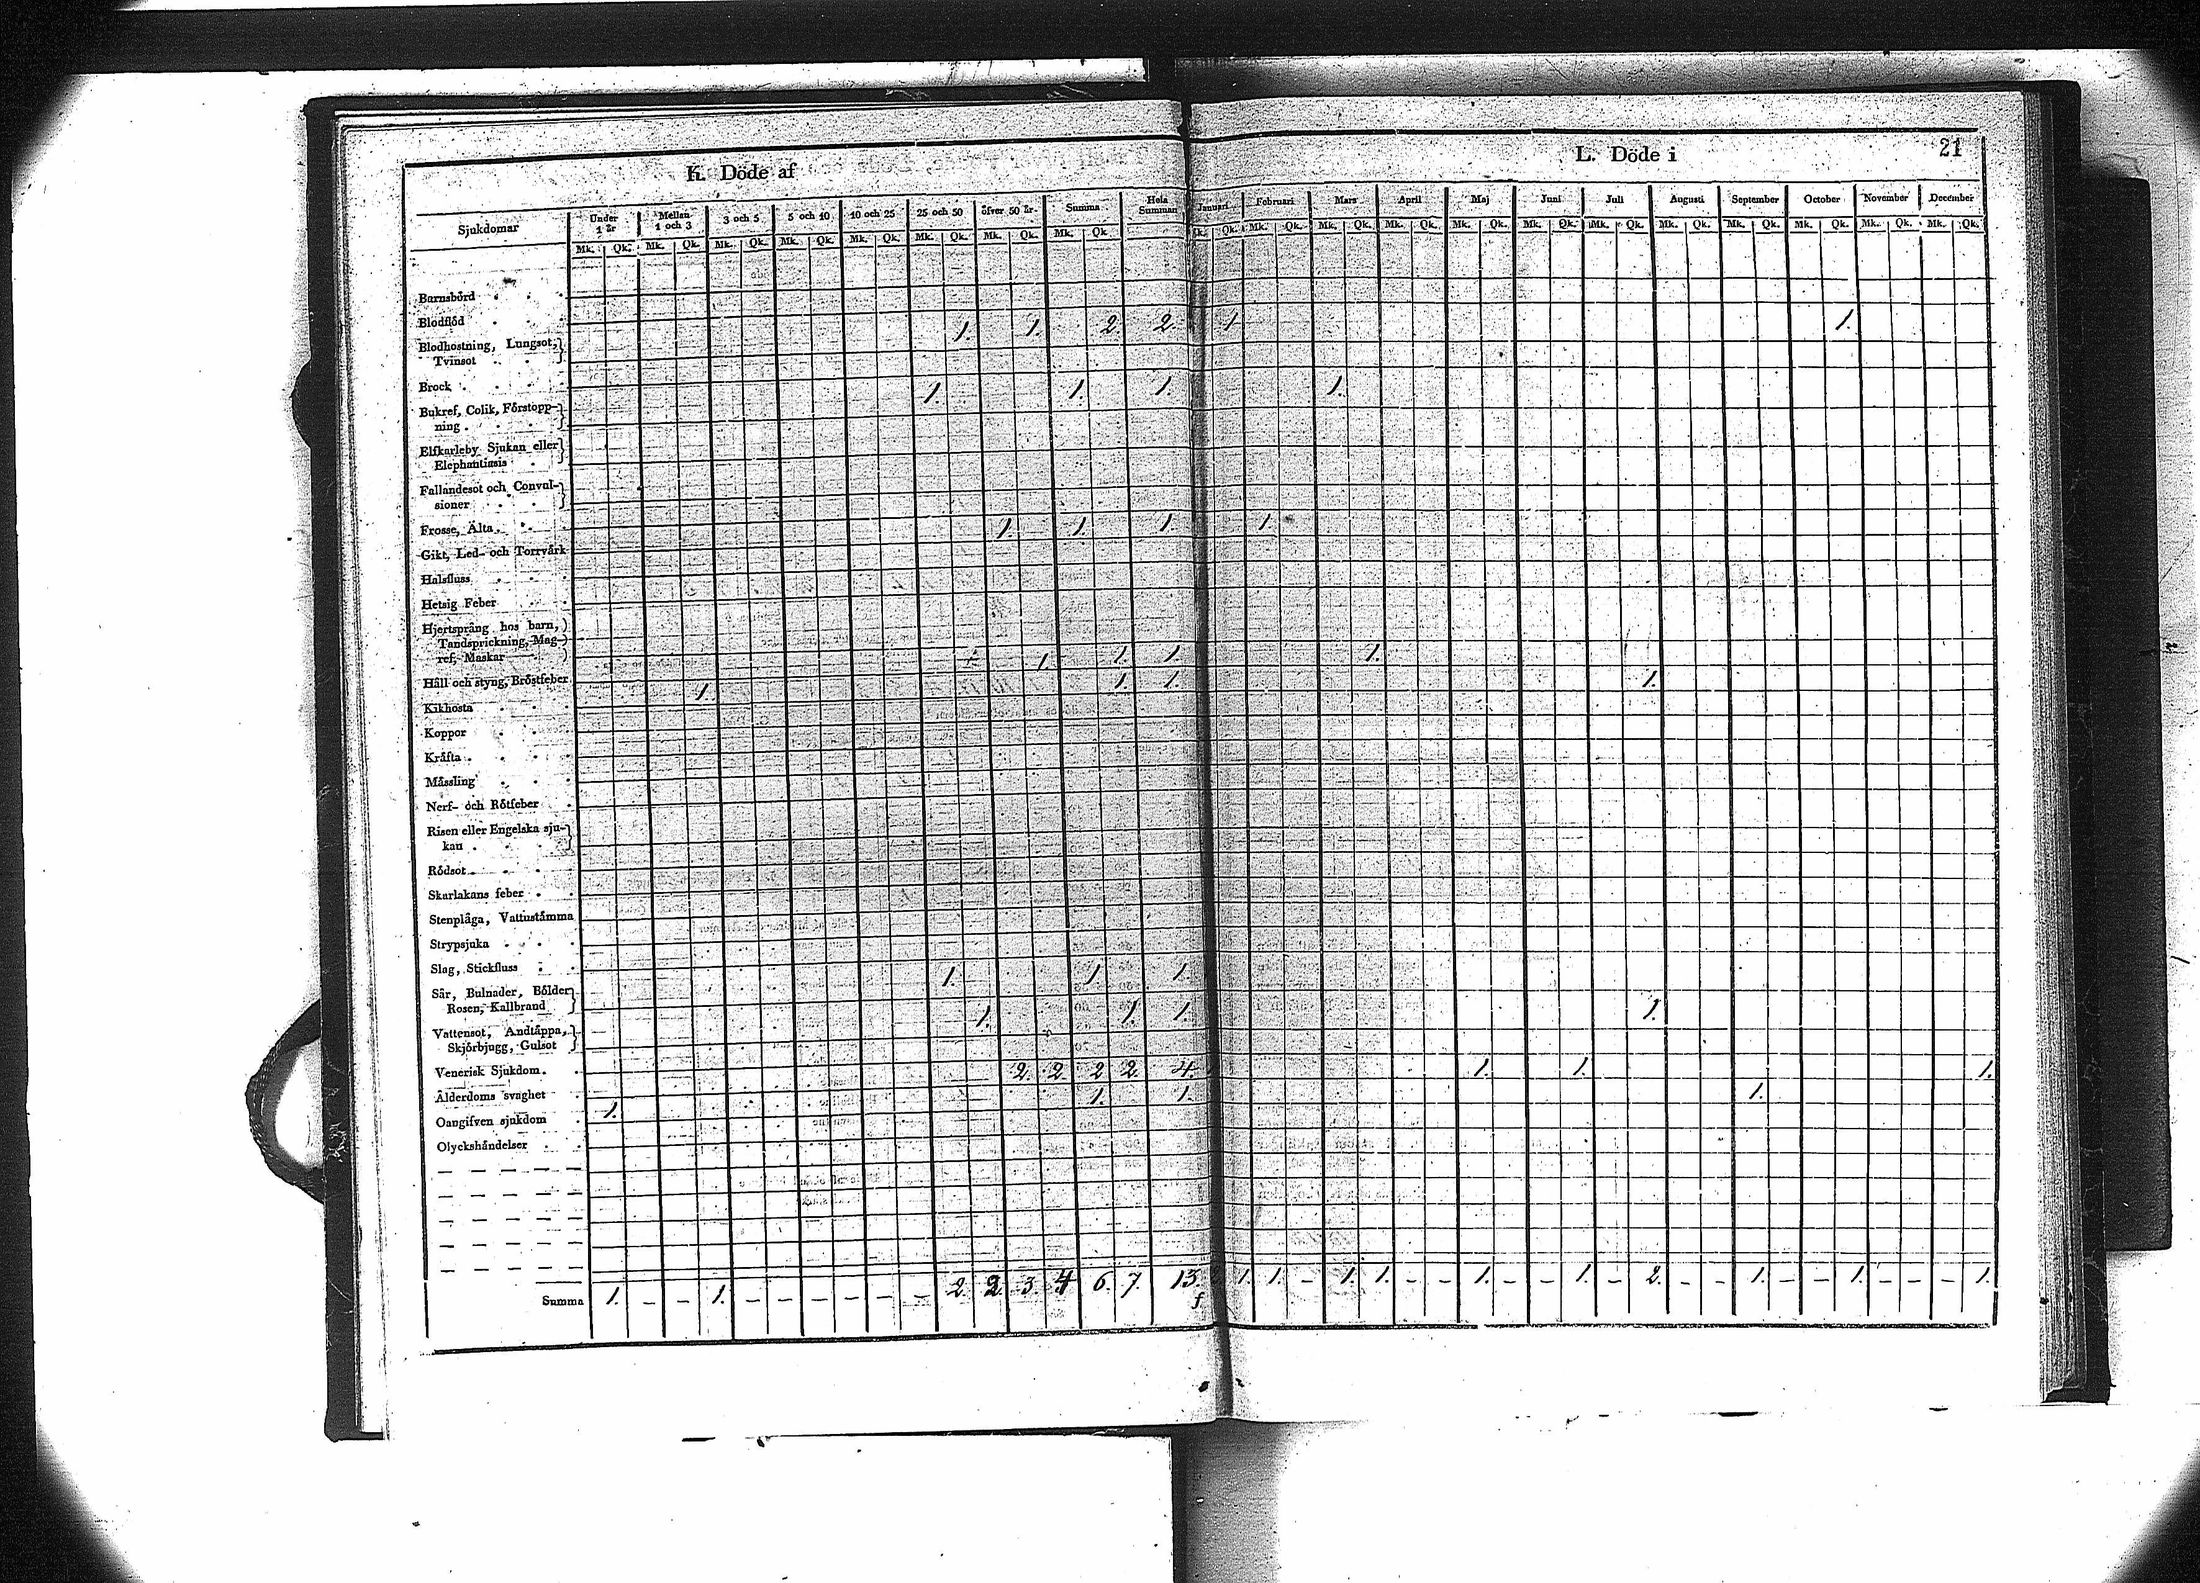 K. Döde af
L. Döde i
21
Sjukdomar
Under 1 år
Mellan 1 och 3
3 och 5
5 och 10
10 och 25
25 och 50
öfver 50 år
Summa
Hela Summan
Januari
Februari
Mars
April
Maj
Juni
Juli
Augusti
September
October
November
December
Mk. Qk. Mk. Qk. Mk. Qk. Mk. Qk. Mk. Qk. Mk. Qk. Mk. Qk. Mk. Qk.
Qk. Mk. Qk. Mk. Qk. Mk. Qk. Mk. Qk. Mk. Qk. Mk. Qk. Mk. Qk. Mk. Qk. Mk. Qk. Mk. Qk. Mk. Qk.
Barnsbörd
Blodflöd 1. 1. 2. 2. 1 1.
Blodhostning, Lungsot,
Tvinsot
Brock 1. 1. 1. 1.
Bukref, Colik, Förstopp-
ning
Elfkarleby Sjukan eller
Elephantiasis
Fallandesot och Convul-
sioner
Frosse, Älta 1. 1. 1. 1.
Gikt, Led- och Torrvärk
Halsfluss
Hetsig Feber
Hjertsprång hos barn,
Tandsprickning, Mag-
ref, Maskar 1. 1. 1. 1.
Håll och styng, Bröstfeber 1. 1. 1. 1.
Kikhosta
Koppor
Kräfta
Mässling
Nerf- och Rötfeber
Risen eller Engelska sju-
kan
Rödsot
Skarlakans feber
Stenplåga, Vattustämma
Strypsjuka
Slag, Stickfluss 1. 1. 1.
Sår, Bulnader, Bölder
Rosen, Kallbrand 1. 1. 1. 1.
Vattensot, Andtäppa,
Skjörbjugg, Gulsot
Venerisk Sjukdom 2. 2. 2. 2. 4. 1. 1. 1.
Ålderdoms svaghet 1. 1. 1. 1.
Oangifven sjukdom
Olyckshändelser
Summa 1. – – 1. – – – – – – 2. 2. 3. 4. 6. 7. 13. 1. 1. – 1. 1. – – 1. – – 1. – 2. – – 1. – – 1. – – 1.